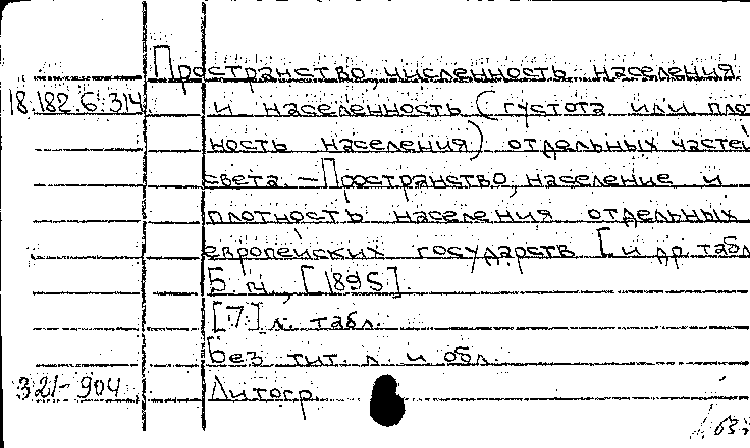 Пространство, численность населения
18.182.6.314 и населенность (густота или плот
ность населения) отдельных частей
света. — Пространство, население и
плотность населения отдельных
европейских государств [и др. табл
Б. м., [1895].
[7] л. табл.
Без тит. л. и обл.
321-904 Литогр.